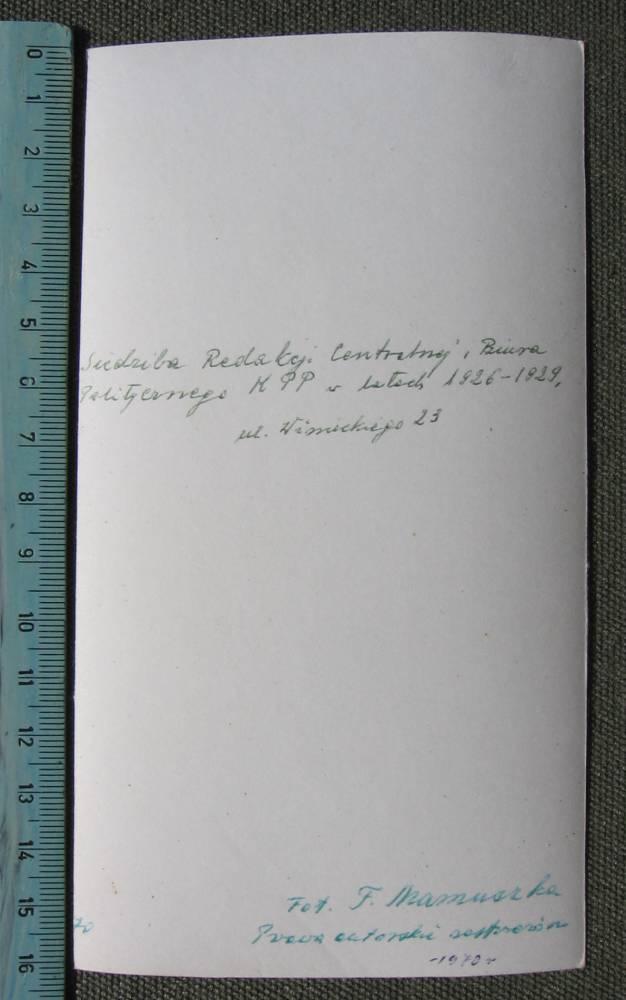 0
1
2
3
4
5
6
7
8
9
10
11
12
13
14
15
16
Siedziba Redakcji Centralnej i Biura
Politycznego KPP w latach 1926-1929,
ul. 23
Fot. F. Mamuszka
Prawa autorskie zastrzeżone
-1970 r